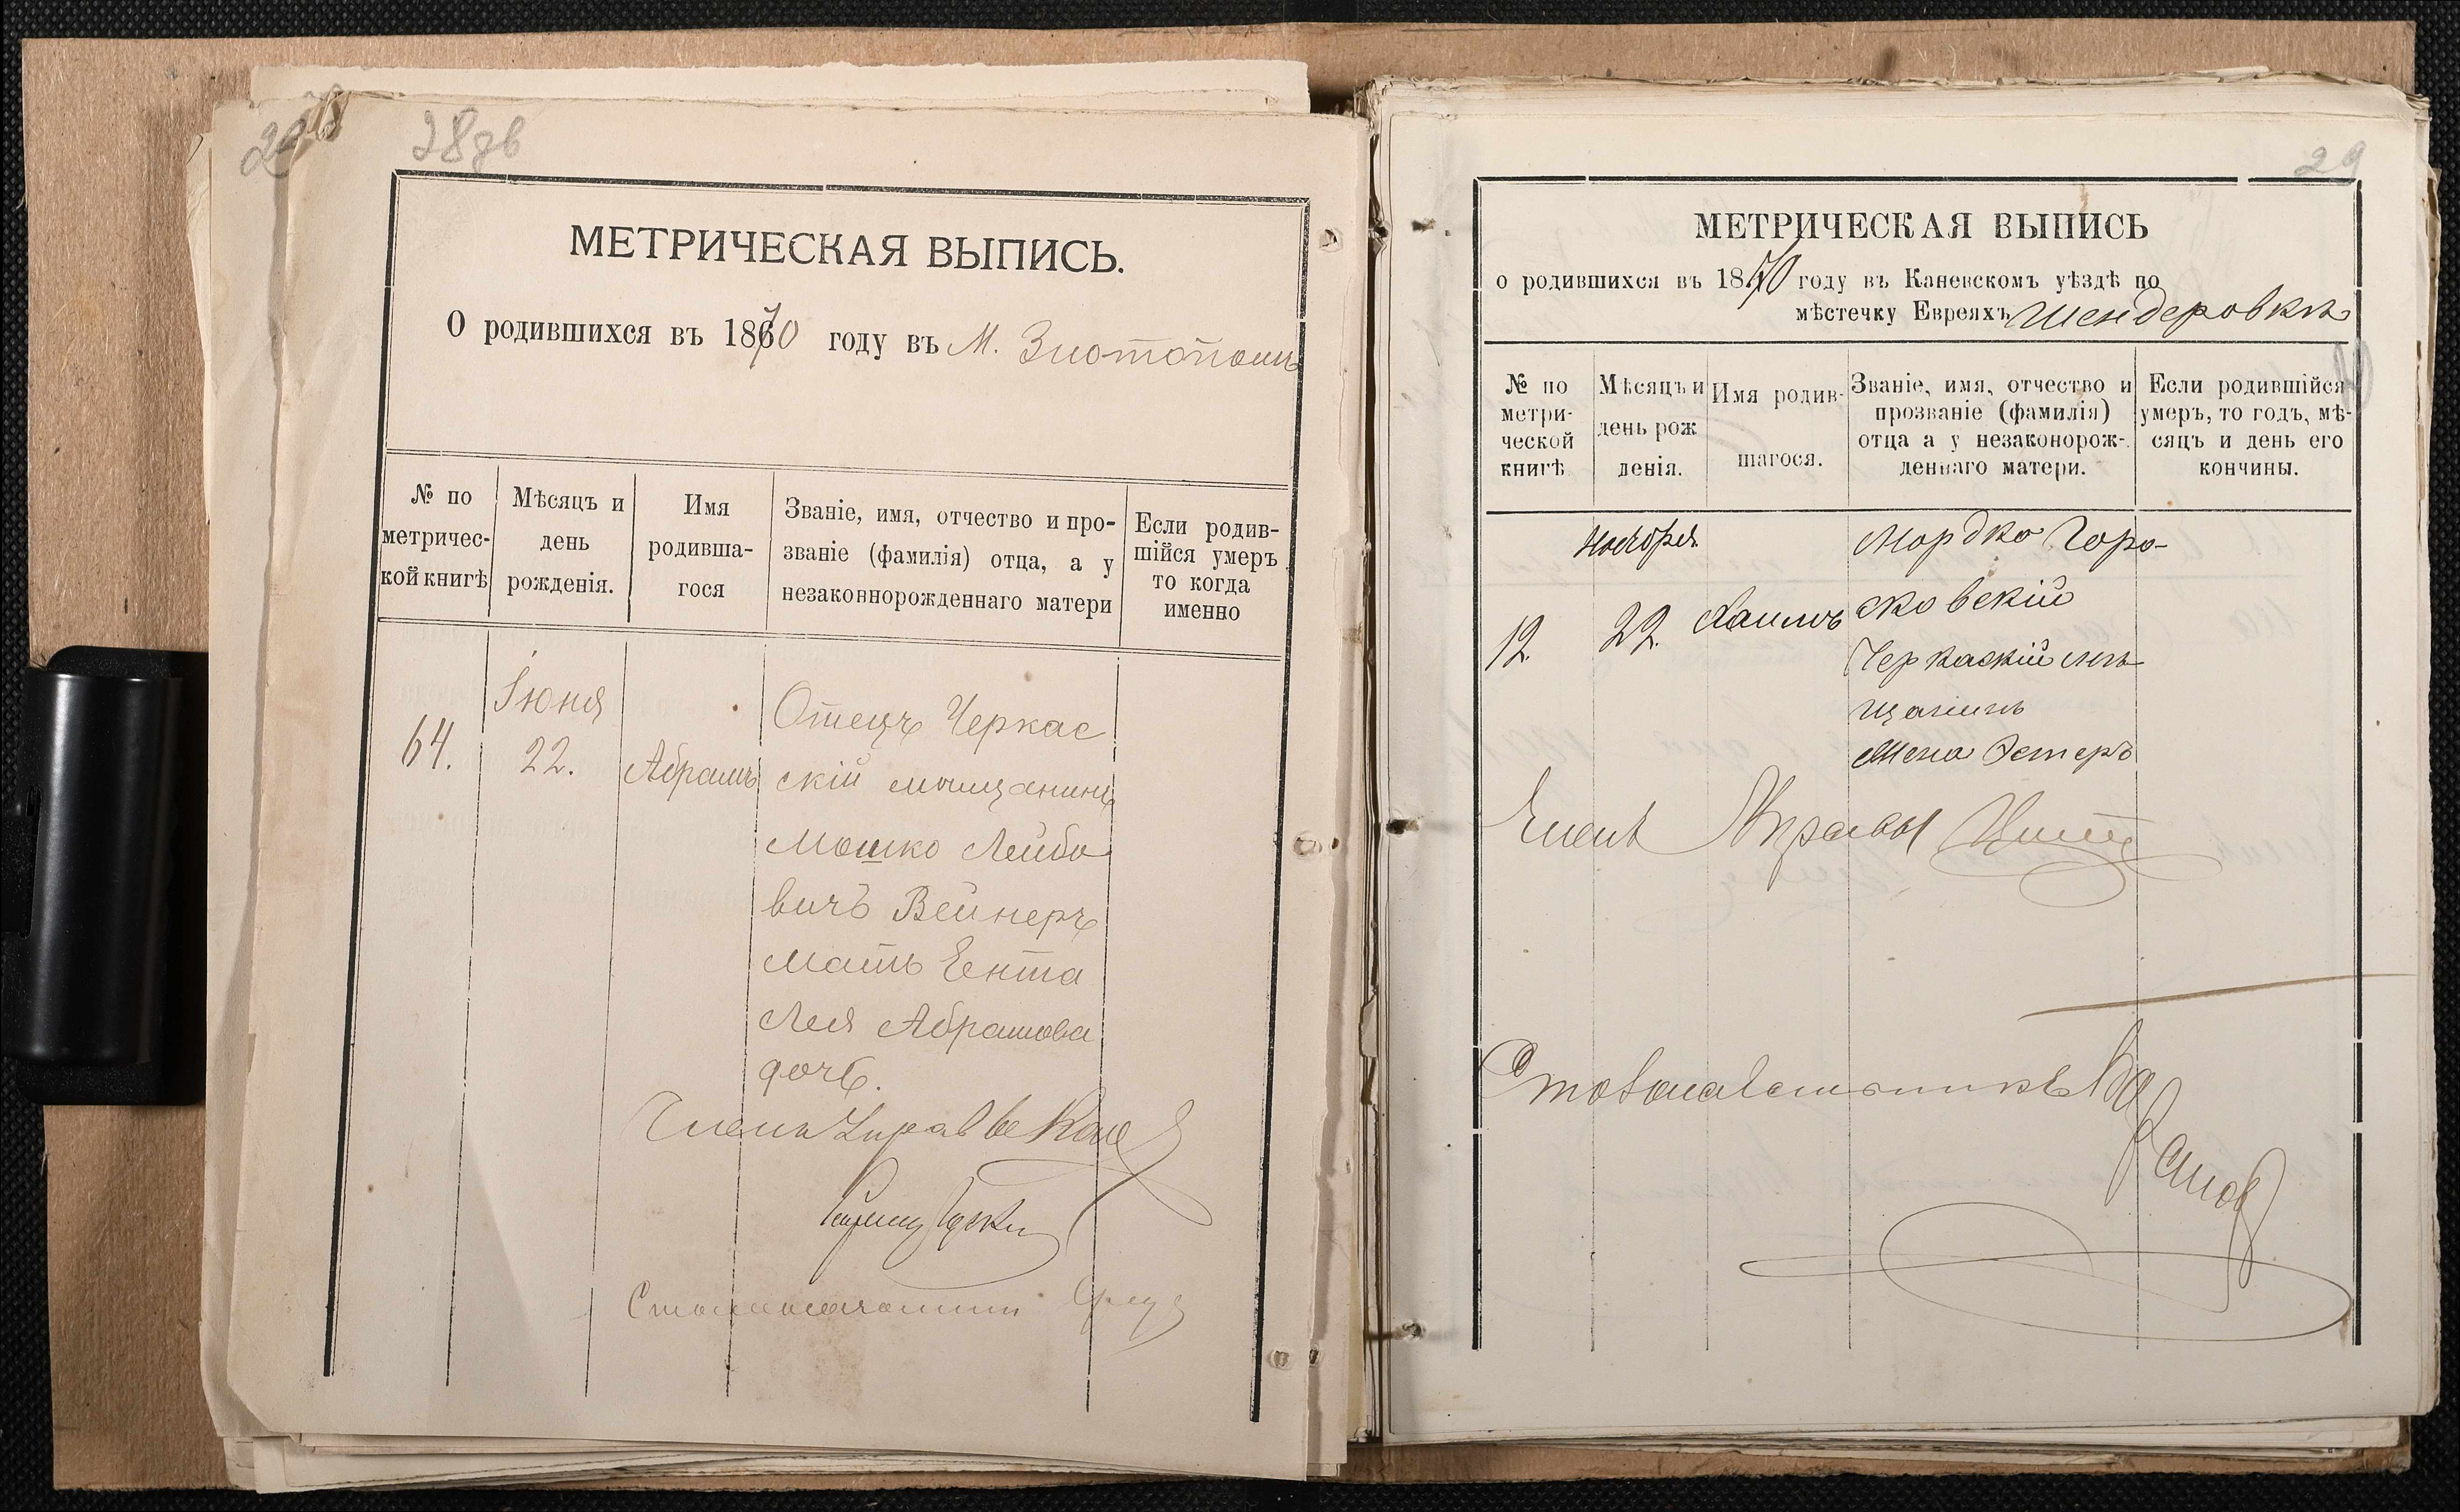 28
28 зв
МЕТРИЧЕСКАЯ ВЫПИСЬ.
О родившихся въ 1870 году въ М. Златополѣ
№ по
метричес-
кой книгѣ
Мѣсяцъ и
день
рожденія.
Имя
родивша-
гося
Званіе, имя, отчество и про-
званіе (фамилія) отца, а у
незаконнорожденнаго матери
Если родив-
шійся умеръ
то когда
именно
64.
Іюня
22.
Абрамъ
Отецъ Черкас
скій мѣщанинъ
Мошко Лейбо
вичъ Вейнеръ
мать Ента
Лея Абрамова
дочь.
Членъ Управы
29
МЕТРИЧЕСКАЯ ВЫПИСЬ
о родившихся въ 1870 году въ Каневскомъ уѣздѣ по
мѣстечку Евреяхъ Шендеровкѣ
№ по
метри-
ческой
книгѣ
Мѣсяцъ и
день рож
денія.
Имя родив-
шагося.
Званіе, имя, отчество и
прозваніе (фамилія)
отца а у незаконорож-
деннаго матери.
Если родившійся
умеръ, то годъ, мѣ-
сяцъ и день его
кончины.
12.
Ноября
22.
Хаимъ
Мордко Горо-
Черкаскій мѣ
щанинъ
Жена Эстеръ
Членъ Управы
Столоначальникъ